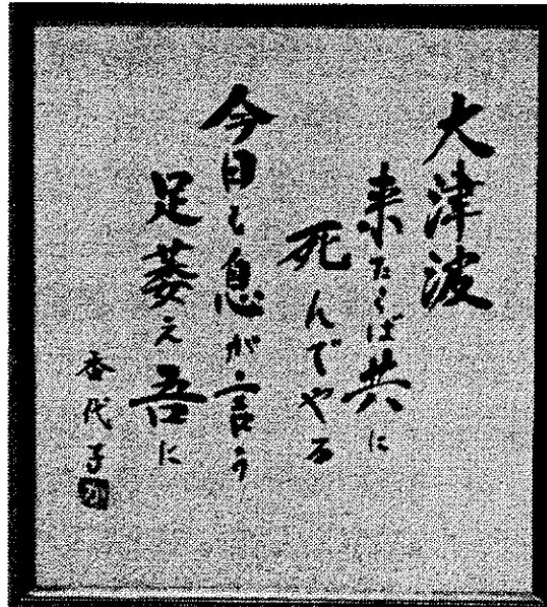 大津波
来たらば共に
死んでやる
今日も息が言う
足萎え吾に
香代子